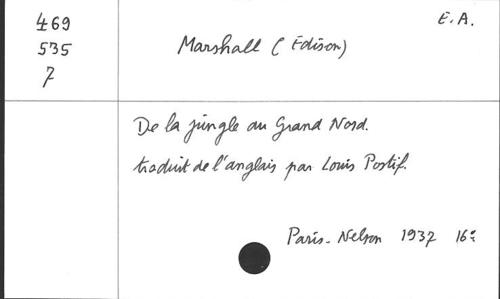 469
535
7
E.A.
Marshall (Edison)
De la jungle au Grand Nord.
traduit de l'anglais par Louis Postif.
Paris. Nelson 1937 16º